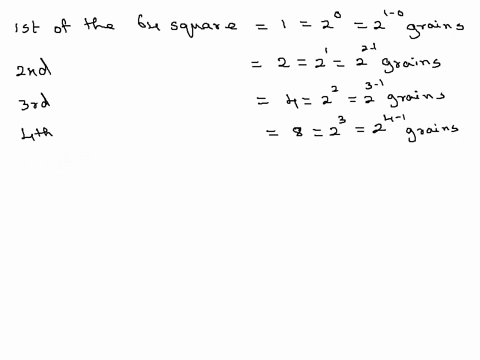 1st of the 64 square = 1 = 2^0 = 2^{1-0} grains
2nd = 2 = 2^1 = 2^{2-1} grains
3rd = 4 = 2^2 = 2^{3-1} grains
4th = 8 = 2^3 = 2^{4-1} grains